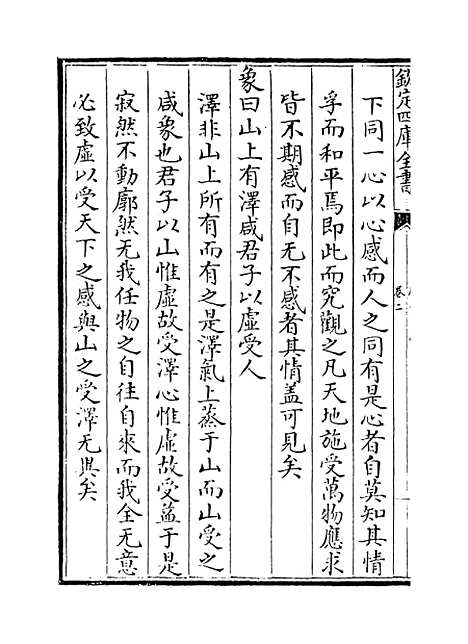 欽定四庫全書
卷二
下同一心以心感而人之同有是心者自莫知其情
孚而和平焉即此而究觀之凡天地施受萬物應求
皆不期感而自无不感者其情盖可見矣
象曰山上有澤咸君子以虛受人
澤非山上所有而有之是澤氣上蒸于山而山受之
咸象也君子以山惟虛故受澤心惟虛故受益于是
寂然不動廓然无我任物之自往自來而我全无意
必致虛以受天下之感與山之受澤无異矣